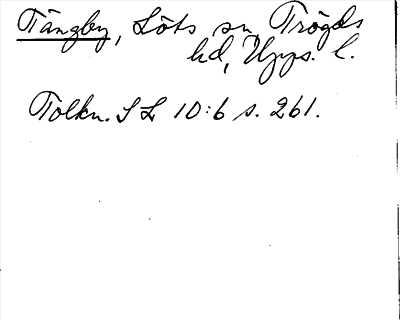 Tängby, Löts sn, Trögds
hd, Upps. l.
Tolkn. SL 10:6 s. 261.